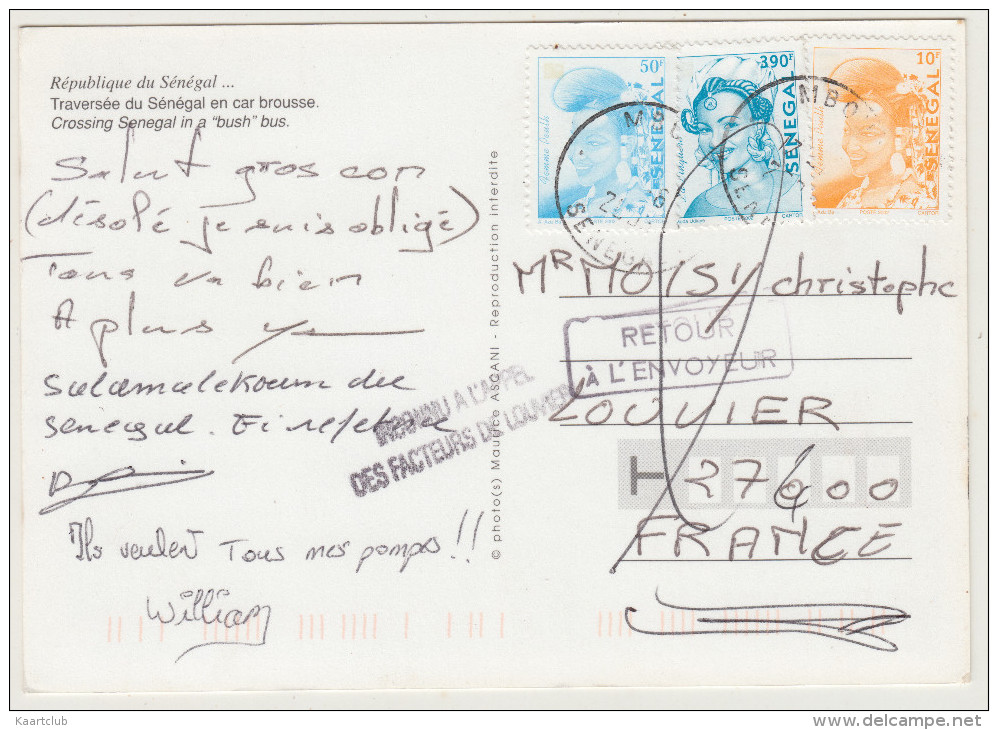 République du Sénégal ...
Traversée du Sénégal en car brousse.
Crossing Senegal in a "bush" bus.
Salut gros con
(désolé je suis obligé)
Tous va bien
A plus
Salamalekoum du
senegal.
Ils veulent Tous mes pompes !!
William
© photo(s) Maurice ASCANI - Reproduction interdite
50F
SENEGAL
390F
SENEGAL
10F
SENEGAL
MBO
SENEGAL
MR MOISY christophe
RETOUR
À L'ENVOYEUR
INCONNU A L'APPEL
DES FACTEURS DE LOUVIERS
LOUVIER
27600
FRANCE
Kaartclub
delcampe.net